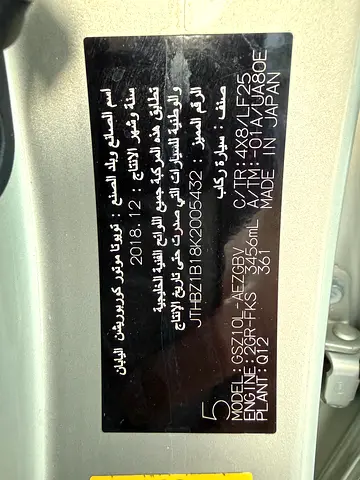 اسم الصانع وبلد الصنع : تويوتا موتور كوربوريشن اليابان
سنة وشهر الانتاج : 2018.12
تطابق هذه المركبة جميع اللوائح الفنية الخليجية
والوطنية للسيارات التي صدرت حتى تاريخ الإنتاج
الرقم المميز : JTHBZ1B18K2005432
صنف : سيارة ركاب
5
MODEL:GSZ10L-AEZGBV C/TR:4X8/LF25
ENGINE:2GR-FKS 3456mL A/TM:-01A/UA80E
PLANT:Q12 361 MADE IN JAPAN